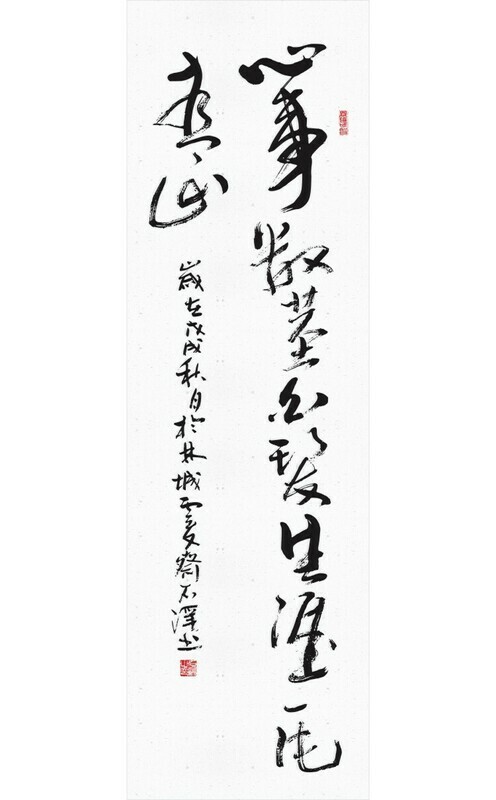 心事数茎白髮生涯一片
青山
歲在戊戌秋月於林城齋石書